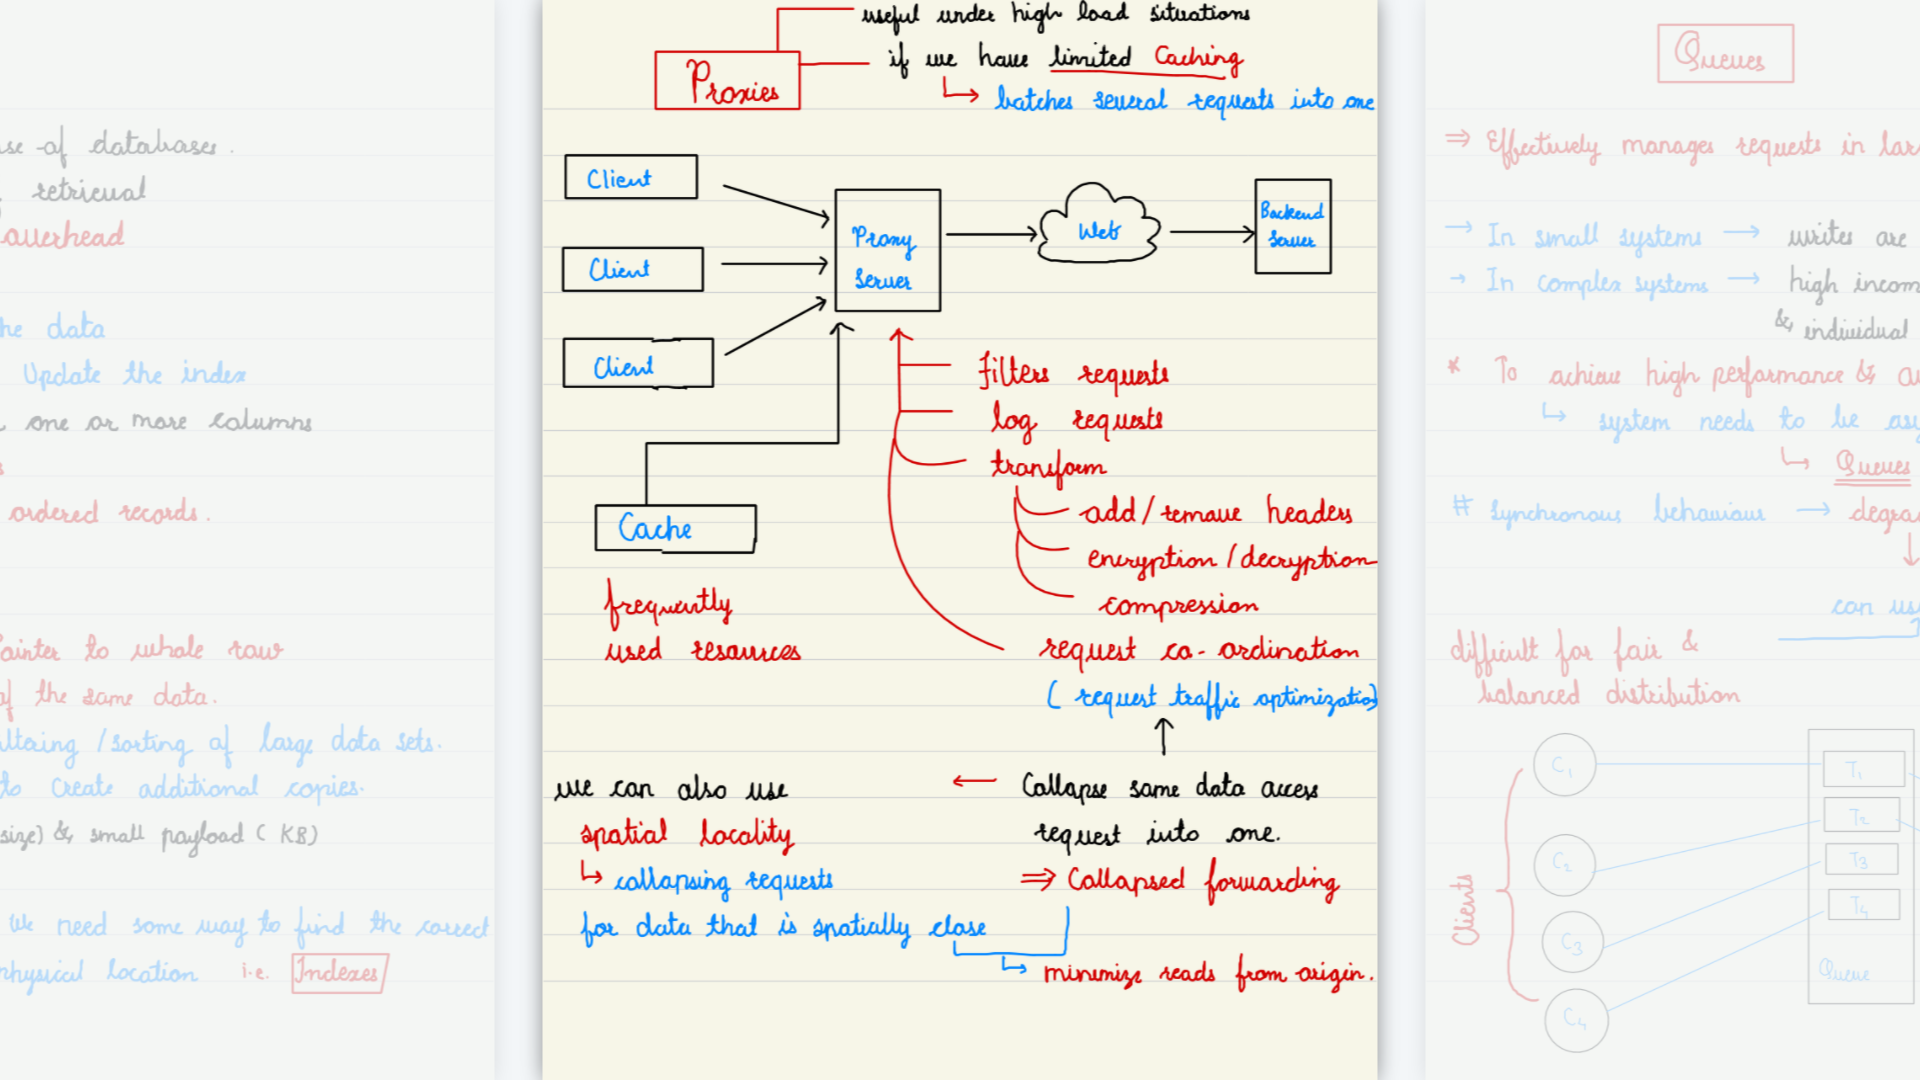 use of databases.
retrieval
overhead
the data
Update the index
one or more columns
ordered records.
Pointer to whole row
of the same data.
filtering / sorting of large data sets.
to create additional copies.
size) & small payload ( KB)
We need some way to find the correct
physical location i.e. Indexes
useful under high load situations
Proxies
if we have limited Caching
batches several requests into one
Client
Client
Client
Proxy
Server
Web
Backend
Server
Cache
frequently
used resources
filters requests
log requests
transform
add / remove headers
encryption / decryption
compression
request co-ordination
( request traffic optimization)
Collapse same data access
request into one.
⇒ Collapsed forwarding
we can also use
spatial locality
collapsing requests
for data that is spatially close
minimize reads from origin.
Queues
⇒ Effectively manages requests in lar
→ In small systems → writes are
→ In complex systems → high incom
& individual
* To achieve high performance & av
system needs to be asy
Queues
# Synchronous behaviour → degrad
can us
difficult for fair &
balanced distribution
Clients
C1
C2
C3
C4
T1
T2
T3
T4
Queue